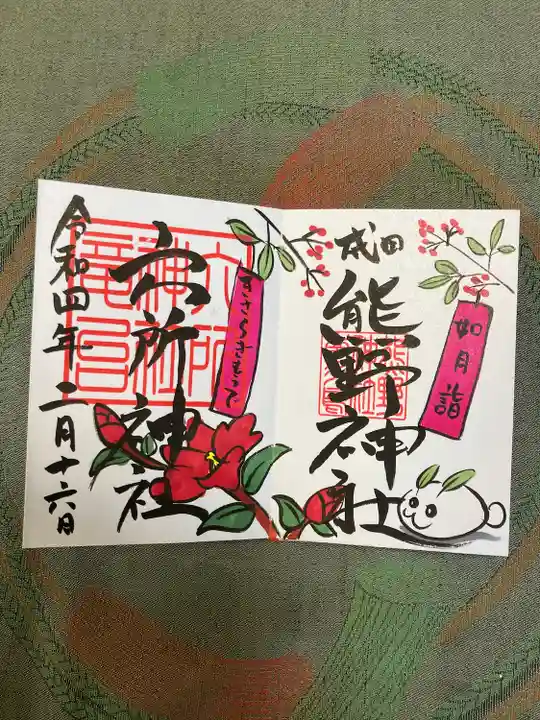 成田
熊野神社
如月詣
六所神社
きさらぎもうで
令和四年二月十六日